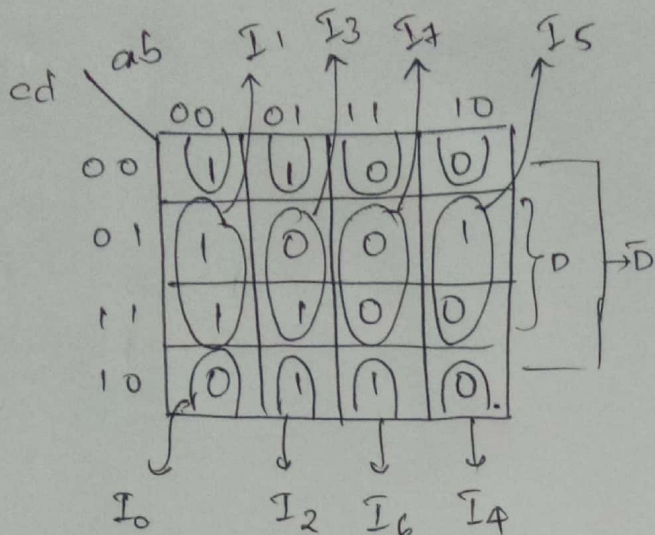 ab I1 I3 I7 I5
cd
00 01 11 10
00 1 1 0 0
01 1 0 0 1 D D̄
11 1 1 0 0
10 0 1 1 0.
I0 I2 I6 I4